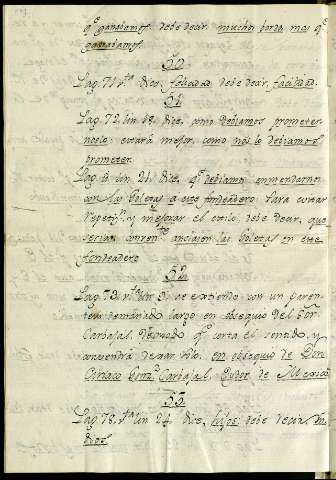 qᵉ ganabamos debe decir mucho bordo mas qᵉ
ganabamos
50
Pag. 71 vᵗᵃ dice felicidad debe decir facilidad.
51
Pag. 72. lin. 18. dice, como debiamos prometer-
noslo estará mejor, como nos lo debiamos
prometer.
Pag. lin. 21. dice, qᵉ debiamos enmendarnos
con las Goletas a este fondeadero. Para evitar
repetiⁿ. y mejorar el estilo debe decir, que
serian convenᵗᵉ anclasen las Goletas en este
fondeadero
52
Pag. 73. vᵗᵃ lin. se extiendo con un paren-
tesis demasiado largo en obsequio del Sor
Carbajal. De modo qᵉ corta el sentido, y
convendrá dexar solo. en obsequio de Don
Ciriaco Gonz. Carbajal. Oydor de Mexico
53
Pag. 78. vᵗᵃ lin. 24. dice, hijos debe decir In-
dios.